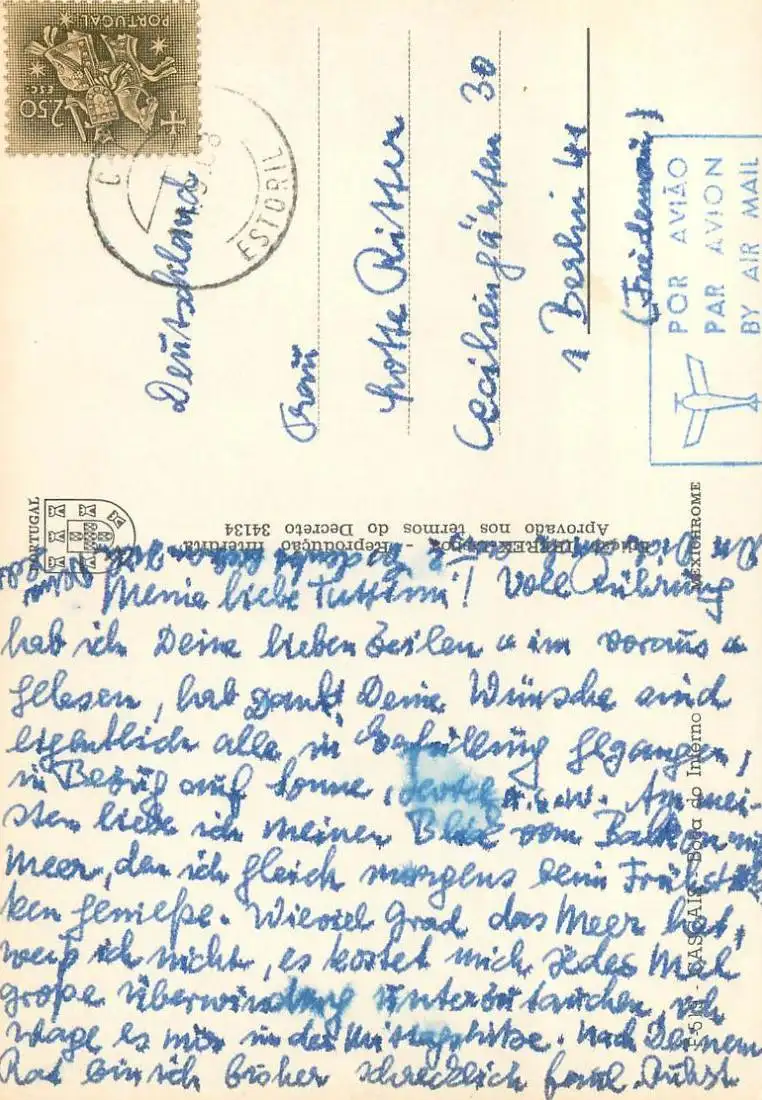 PORTUGAL
2$50
ESC.
ESTORIL
Deutschland
Frau
Lotte Ritter
Ceciliengärten 30
1 Berlin 41
(Friedenau)
POR AVIÃO
PAR AVION
BY AIR MAIL
PORTUGAL
Reprodução interdita
Aprovado nos termos do Decreto 34134
MEXICHROME
CASCAIS - Boca do Inferno
Meine liebe Tuttimi! Voll Rührung
hab ich Deine lieben Zeilen "im voraus"
gelesen, hab Dank! Deine Wünsche sind
eigentlich alle in Erfüllung gegangen,
in Bezug auf Sonne, Am mei-
sten liebe ich meinen Blick vom Balkon
Meer, den ich gleich morgens beim Frühstük-
ken genieße. Wieviel Grad das Meer hat,
weiß ich nicht, es kostet mich jedes Mal
große Überwindung unterzutauchen, ich
wage es nur in der Mittagshitze. Nach Deinem
Rat bin ich bisher schrecklich faul.